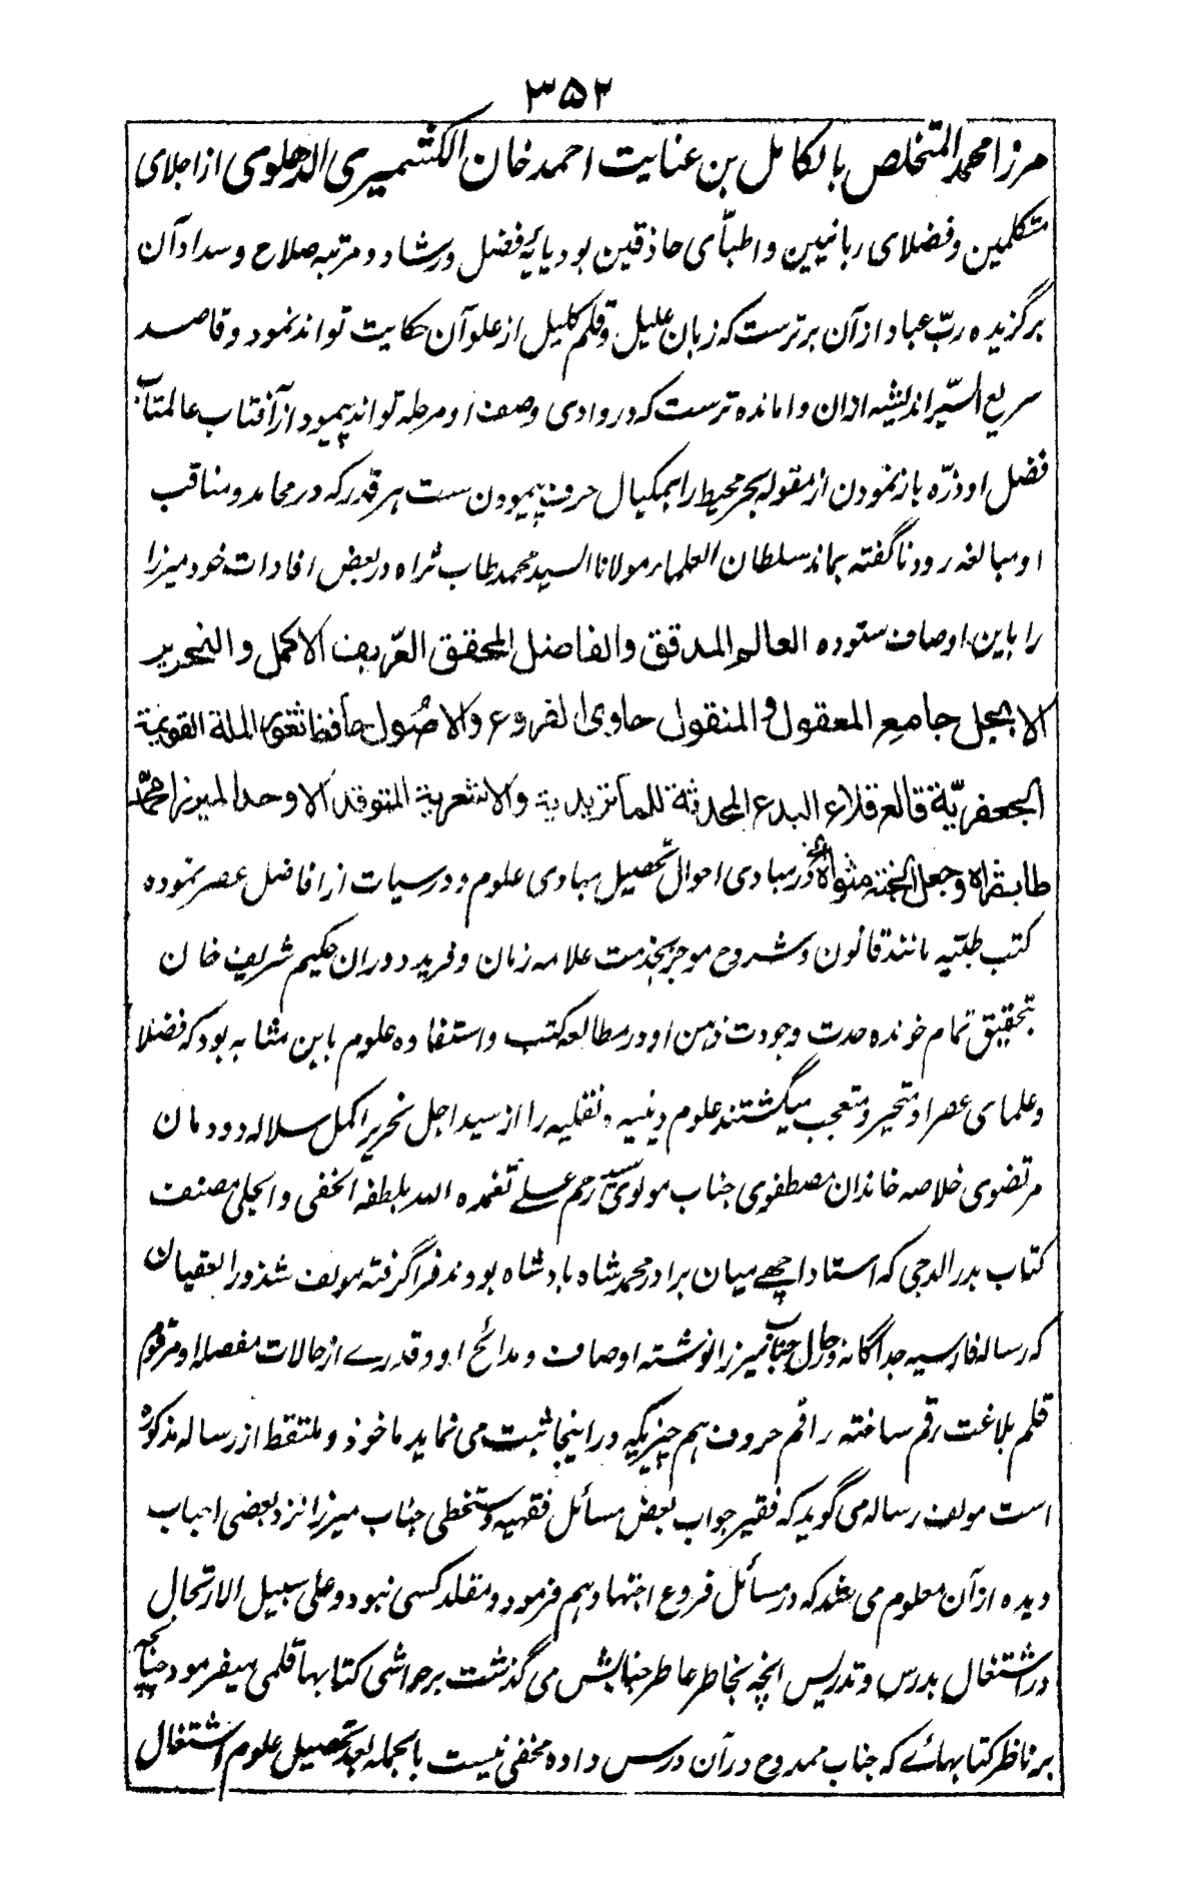 ۳۵۲
مرزا محمد المتخلص بالکامل بن عنایت احمد خان الکشمیری الدهلوی از اجلای
متکلمین و فضلای ربانیین و اطبّای حاذقین بود پایۀ فضل و رشاد و مرتبه صلاح و سداد آن
برگزیده ربّ عباد از آن برترست که زبان علیل و قلم کلیل از علو آن حکایت تواند نمود و قاصد
سریع السّیر اندیشه ازان وامانده ترست که در وادی وصف او مرحله تواند پیمود از آفتاب عالمتاب
فضل او ذرّه باز نمودن از مقوله بحر محیط را بمکیال حرف پیمودن ست هر قدر که در محامد و مناقب
او مبالغه رود ناگفته بماند سلطان العلماء مولانا السید محمد طاب ثراه در بعض افادات خود میرزا
را باین اوصاف ستوده العالم المدقق والفاضل المحقق العرّیف الاکمل والنحریر
الابجل جامع المعقول و المنقول حاوی الفروع والاصُول حافظ ثغور الملة القویمة
الجعفریّة قالع قلاع البدع المحدثة للماتریدیة والاشعریة المتوقد الاوحد المیرزا محمّد
طاب ثراه وجعل الجنة مثواه در مبادی احوال تحصیل مبادی علوم و درسیات از افاضل عصر نموده
کتب طبّیه مانند قانون و شروح موجز بخدمت علامه زمان و فرید دوران حکیم شریف خان
بتحقیق تمام خونده حدت وجودت ذهن او در مطالعه کتب و استفاده علوم باین مثابه بود که فضلا
و علمای عصر او متحیر و متعجب میگشتند علوم دینیه و نقلیه را از سید اجل نحریر اکمل سلاله دودمان
مرتضوی خلاصه خاندان مصطفوی جناب مولوی سید رحم علے تغمده الله بلطفه الخفی و الجلی مصنف
کتاب بدر الدجی که استاد اچهے میان برادر محمد شاه بادشاه بودند فراگرفته مولف شذور العقیان
که رساله فارسیه جداگانه در حال جناب میرزا نوشته اوصاف و مدائح او و قدرے از حالات مفصله او مرقوم
قلم بلاغت رقم ساخته راقم حروف هم چیزیکه در اینجا ثبت می نماید ماخوذ و ملتقط از رساله مذکوره
است مولف رساله می گوید که فقیر جواب بعض مسائل فقهیه دستخطی جناب میرزا نزد بعضی احباب
دیده ازآن معلوم می شد که در مسائل فروع اجتهاد هم فرمود و مقلد کسی نبود و علی سبیل الارتجال
در اشتغال بدرس و تدریس انچه بخاطر عاطر جنابش می گذشت بر حواشی کتابها قلمی میفرمود چنانچه
بر ناظر کتابهائے که جناب ممدوح در آن درس داده مخفی نیست بالجمله بعد تحصیل علوم اشتغال